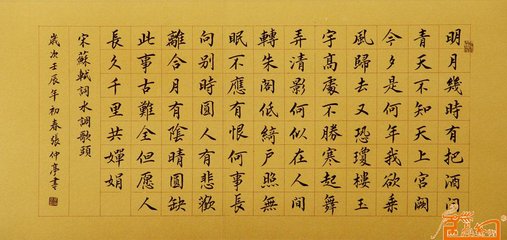 明月幾時有把酒问
青天不知天上宫闕
今夕是何年我欲乘
風歸去又恐瓊樓玉
宇高處不勝寒起舞
弄清影何似在人间
轉朱阁低綺户照無
眠不應有恨何事長
向别時圆人有悲歡
離合月有陰晴圆缺
此事古難全但愿人
長久千里共嬋娟
宋蘇軾詞水調歌頭
歲次壬辰年初春張仲亭書